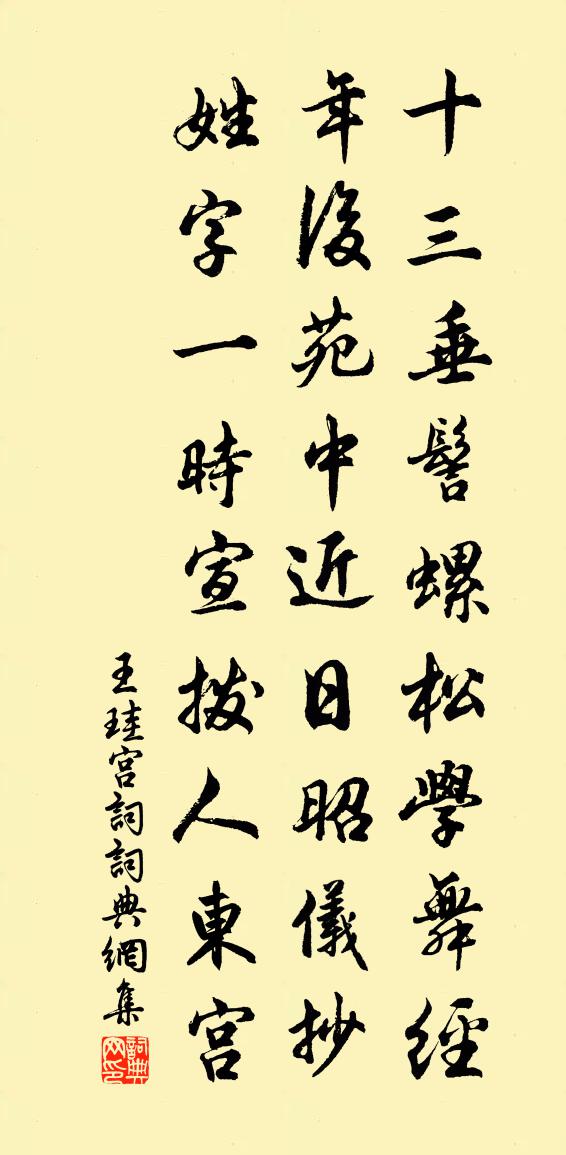 十三垂髻螺松學舞經
年後苑中近日昭儀抄
姓字一時宣撥人東宮
王珪宮詞詞典網集
詞典网印